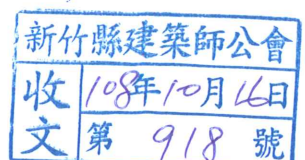 新竹縣建築師公會
收文
108年10月16日
第 918 號